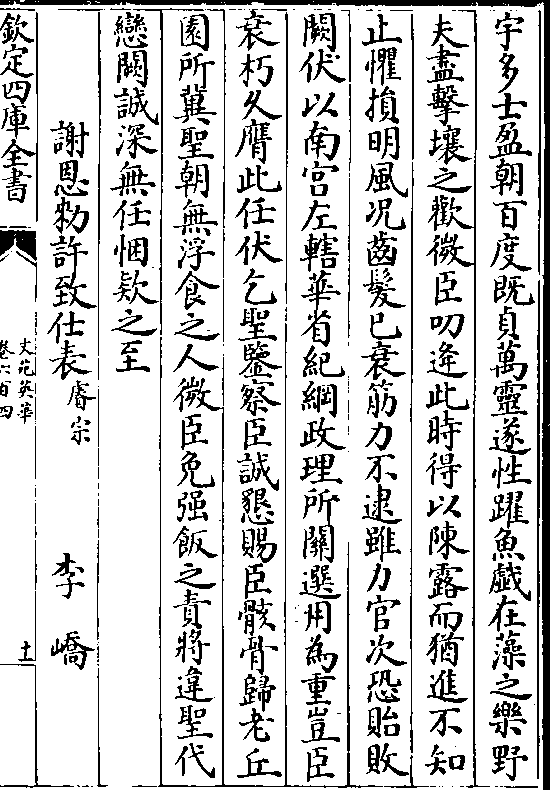 宇多士盈朝百度既貞萬靈遂性躍魚戲在藻之樂野
夫盡擊壤之歡微臣叨逢此時得以陳露而猶進不知
止懼損明風况齒髮已衰筋力不逮雖力官次恐貽敗
闕伏以南宮左轄華省紀綱政理所關選用為重豈臣
衰朽久膺此任伏乞聖鑒察臣誠懇賜臣骸骨歸老丘
園所冀聖朝無浮食之人微臣免强飯之責將違聖代
戀闕誠深無任悃欵之至
謝恩勑許致仕表睿宗 李嶠
欽定四庫全書
文苑英華
卷六百四
十一